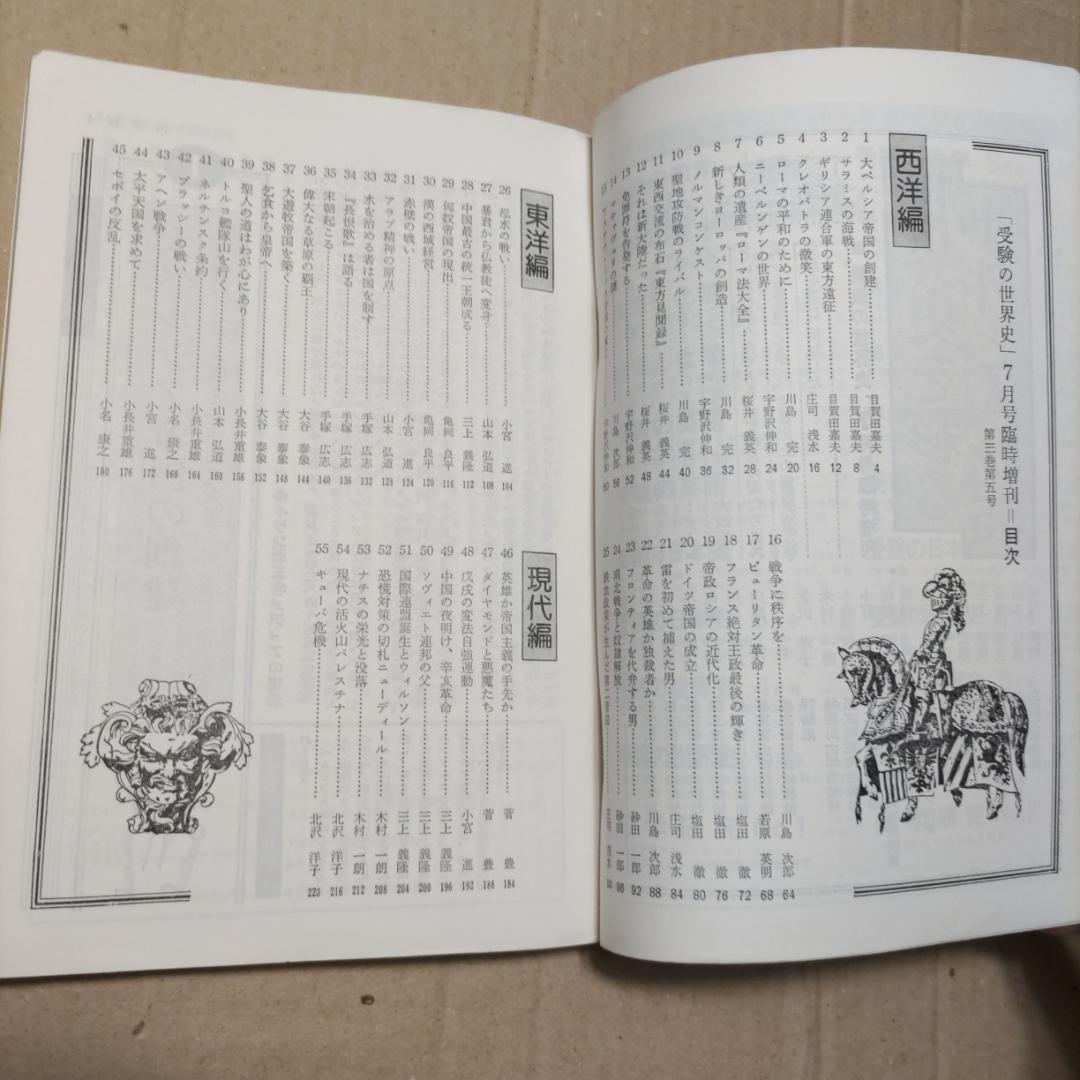 「受験の世界史」7月号臨時増刊＝目次
第三巻第五号
西洋編
1 大ペルシア帝国の創建 目賀田嘉夫 4
2 サラミスの海戦 目賀田嘉夫 8
3 ギリシア連合軍の東方遠征 目賀田嘉夫 12
4 クレオパトラの微笑 庄司 浅水 16
5 ローマの平和のために 川島 完 20
6 ニーベルンゲンの世界 宇野沢伸和 24
7 人類の遺産『ローマ法大全』 桜井 義英 28
8 新しきヨーロッパの創造 川島 完 32
9 ノルマンコンケスト 宇野沢伸和 36
10 聖地攻防戦のライバル 川島 完 40
11 東西交流の布石『東方見聞録』 桜井 義英 44
12 それは新大陸だった 桜井 義英 48
13 免罪符を告発する 宇野沢伸和 52
14 川島 次郎 56
16 戦争に秩序を 川島 次郎 64
17 ピューリタン革命 若原 英明 68
18 フランス絶対王政最後の輝き 塩田 徹 72
19 帝政ロシアの近代化 塩田 徹 76
20 ドイツ帝国の成立 塩田 徹 80
21 雷を初めて捕えた男 庄司 浅水 84
22 革命の英雄か独裁者か 川島 次郎 88
23 フロンティアを代弁する男 砂田 一郎 92
24 南北戦争と奴隷解放 砂田 一郎 96
25 鉄血政策が生んだ第二帝国
東洋編
26 泓水の戦い 小宮 進 104
27 暴君から仏教徒へ変身 山本 弘道 108
28 中国最古の統一王朝成る 三上 義隆 112
29 匈奴帝国の現出 亀岡 良平 116
30 漢の西域経営 亀岡 良平 120
31 赤壁の戦い 小宮 進 124
32 アラブ精神の原点 山本 弘道 128
33 水を治める者は国を制す 手塚 広志 132
34 『長恨歌』は語る 手塚 広志 136
35 宋朝起こる 手塚 広志 140
36 偉大なる草原の覇王 大谷 泰象 144
37 大遊牧帝国を築く 大谷 泰象 148
38 乞食から皇帝へ 大谷 泰象 152
39 聖人の道はわが心にあり 小長井重雄 156
40 トルコ艦隊山を行く 山本 弘道 160
41 ネルチンスク条約 小長井重雄 164
42 プラッシーの戦い 小名 康之 168
43 アヘン戦争 小宮 進 172
44 太平天国を求めて 小長井重雄 176
45 セポイの反乱 小名 康之 180
現代編
46 英雄か帝国主義の手先か 菅 豊 184
47 ダイヤモンドと悪魔たち 菅 豊 188
48 戊戌の変法自強運動 小宮 進 192
49 中国の夜明け、辛亥革命 三上 義隆 196
50 ソヴィエト連邦の父 三上 義隆 200
51 国際連盟誕生とウィルソン 三上 義隆 204
52 恐慌対策の切札ニューディール 木村 一朗 208
53 ナチスの栄光と没落 木村 一朗 212
54 現代の活火山パレスチナ 北沢 洋子 216
55 キューバ危機 北沢 洋子 220